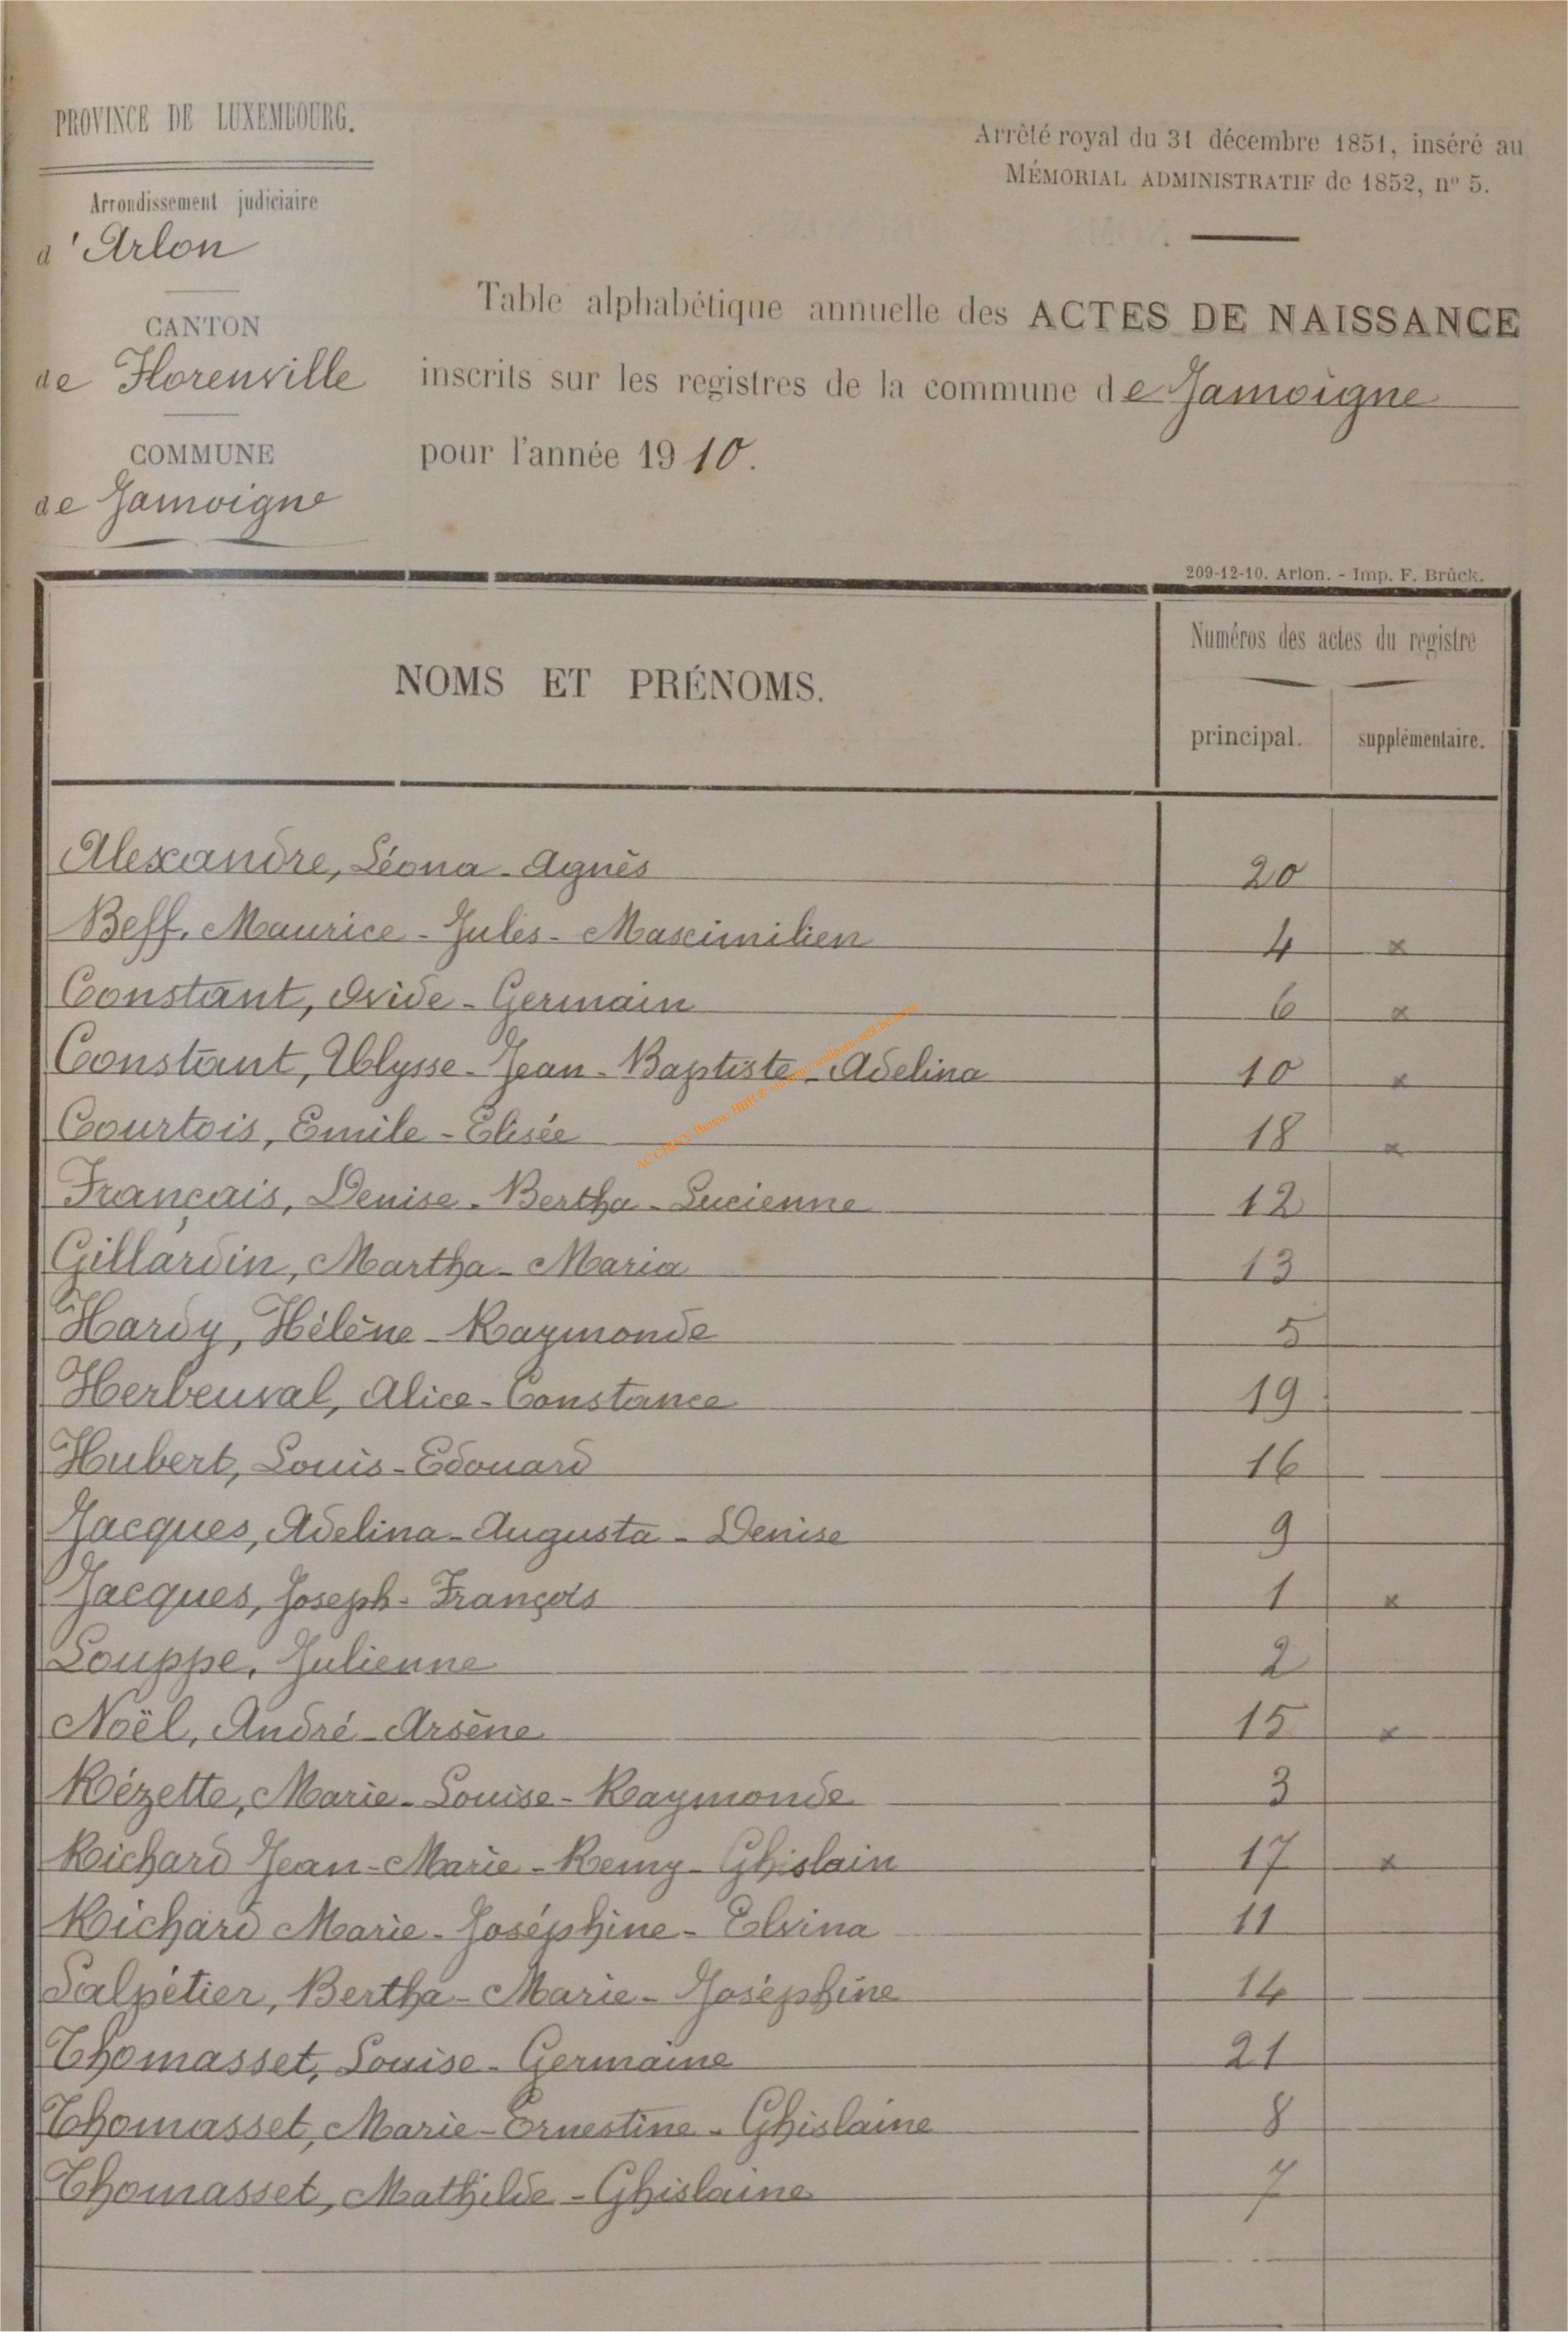 PROVINCE DE LUXEMBOURG.
Arrondissement judiciaire
d'Arlon
CANTON
de Florenville
COMMUNE
de Jamoigne
Arrêté royal du 31 décembre 1851, inséré au
MÉMORIAL ADMINISTRATIF de 1852, nº 5.
Table alphabétique annuelle des ACTES DE NAISSANCE
inscrits sur les registres de la commune de Jamoigne
pour l'année 1910.
209-12-10. Arlon. - Imp. F. Brück.
NOMS ET PRÉNOMS.
Numéros des actes du registre
principal. supplémentaire.
Alexandre, Léona - Agnès 20
Beff, Maurice - Jules - Maximilien 4 x
Constant, Ovide - Germain 6 x
Constant, Ulysse - Jean - Baptiste - Adelina 10 x
Courtois, Emile - Elisée 18 x
Français, Denise - Bertha - Lucienne 12
Gillardin, Martha - Maria 13
Hardy, Hélène - Raymonde 5
Herbeuval, Alice - Constance 19
Hubert, Louis - Edouard 16
Jacques, Adelina - Augusta - Denise 9
Jacques, Joseph - François 1 x
Louppe, Julienne 2
Noël, André - Arsène 15 x
Rézette, Marie - Louise - Raymonde 3
Richard Jean - Marie - Remy - Ghislain 17 x
Richard Marie - Joséphine - Elvina 11
Salpétier, Bertha - Marie - Joséphine 14
Thomasset, Louise - Germaine 21
Thomasset, Marie - Ernestine - Ghislaine 8
Thomasset, Mathilde - Ghislaine 7